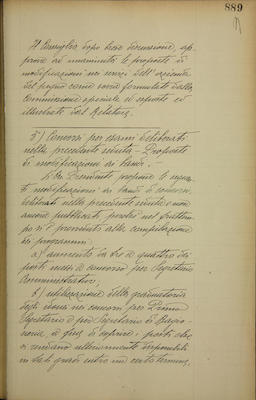 889
Il Consiglio dopo breve discussione, ap-
prova ad unanimità le proposte di
modificazioni nei servizi dell'azienda
del pegno come sono formulate dalla
Commissione speciale ed
illustrate dal Relatore.
3°) Concorsi per esami deliberati
nella precedente seduta - Proposte
di modificazione ai bandi. -
Il Sr. Presidente propone le seguen-
ti modificazioni ai bandi di concorsi,
deliberati nella precedente seduta e non
ancora pubblicati perché nel frattem-
po si è provveduto alla compilazione
dei programmi:
a) aumento da tre a quattro dei
posti messi a concorso per Segretario
Amministrativo;
b) utilizzazione della graduatoria
degli idonei nei concorsi per Primo
Segretario e per Segretario di Ragio-
neria, a fine di coprire i posti che
si rendano ulteriormente disponibili
in detti gradi entro un certo termine,